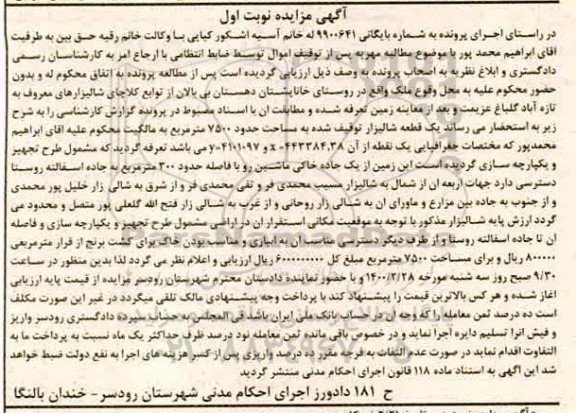 آگهی مزایده نوبت اول
در راستای اجرای پرونده به شماره بایگانی ۹۹۰۰۶۴۱ له خانم آسیه اشکور کیایی با وکالت خانم رقیه حق بین به طرفیت
آقای ابراهیم محمد پور با موضوع مطالبه مهریه پس از توقیف اموال توسط ضابط انتظامی با ارجاع امر به کارشناسان رسمی
دادگستری و ابلاغ نظریه به اصحاب پرونده به وصف ذیل ارزیابی گردیده است پس از مطالعه پرونده به اتفاق محکوم له و بدون
حضور محکوم علیه به محل وقوع ملک واقع در روستای خانپشتان دهستان بی بالان از توابع کلاچای شالیزارهای معروف به
تازه آباد گلباغ عزیمت و بعد از معاینه زمین تعرفه شده و مطابقت آن با اسناد مضبوط در پرونده گزارش کارشناسی را به شرح
زیر به استحضار می رساند یک قطعه شالیزار توقیف شده به مساحت حدود ۷۵۰۰ مترمربع به مالکیت محکوم علیه آقای ابراهیم
محمدپور که مختصات جغرافیایی یک نقطه از آن x=۴۴۳۳۸۴.۳۸ و y=۴۱۰۱۰۹۷ می باشد تعرفه گردید که مشمول طرح تجهیز
و یکپارچه سازی گردیده است این زمین از یک جاده خاکی ماشین رو با فاصله حدود ۳۰۰ مترمربع به جاده اسفالته روستا
دسترسی دارد جهات اربعه آن از شمال به شالیزار مسیب محمدی فر و تقی محمدی فر و از شرق به شالی زار خلیل پور محمدی
و از جنوب به جاده بین مزارع و ماورای آن به شالی زار روحانی و از غرب به شالی زار فتح الله گلعلی پور متصل و محدود می
گردد ارزش پایه شالیزار مذکور با توجه به موقعیت مکانی استقرار آن در اراضی مشمول طرح تجهیز و یکپارچه سازی و فاصله
آن تا جاده اسفالته روستا و از طرف دیگر دسترسی مناسب آن به آبیاری و مناسب بودن خاک برای کشت برنج از قرار مترمربعی
۸۰۰۰۰۰ ریال و برای مساحت ۷۵۰۰ مترمربع مبلغ کل ۶۰۰۰۰۰۰۰۰۰ ریال ارزیابی و اعلام نظر می گردد لذا بدین منظور در ساعت
۹/۳۰ صبح روز سه شنبه مورخه ۱۴۰۰/۲/۲۸ و با حضور نماینده دادستان محترم شهرستان رودسر مزایده از قیمت پایه ارزیابی
آغاز شده و هر کس بالاترین قیمت را پیشنهاد کند با پرداخت وجه پیشنهادی مالک تلقی میگردد در غیر این صورت مکلف
است ده درصد ثمن معامله را که وجه آن در حساب بانک ملی ایران باشد فی المجلس به حساب سپرده دادگستری رودسر واریز
و فیش آنرا تسلیم دایره اجرا نماید و در خصوص باقی مانده ثمن معامله نود درصد ظرف حداکثر یک ماه نسبت به پرداخت ما به
التفاوت اقدام نماید در صورت عدم التفات به فرجه مقرر ده درصد واریزی پس از کسر هزینه های اجرا به نفع دولت ضبط خواهد
شد این آگهی به استناد ماده ۱۱۸ قانون اجرای احکام مدنی منتشر گردید
ح ۱۸۱ دادورز اجرای احکام مدنی شهرستان رودسر - خندان بالنگا